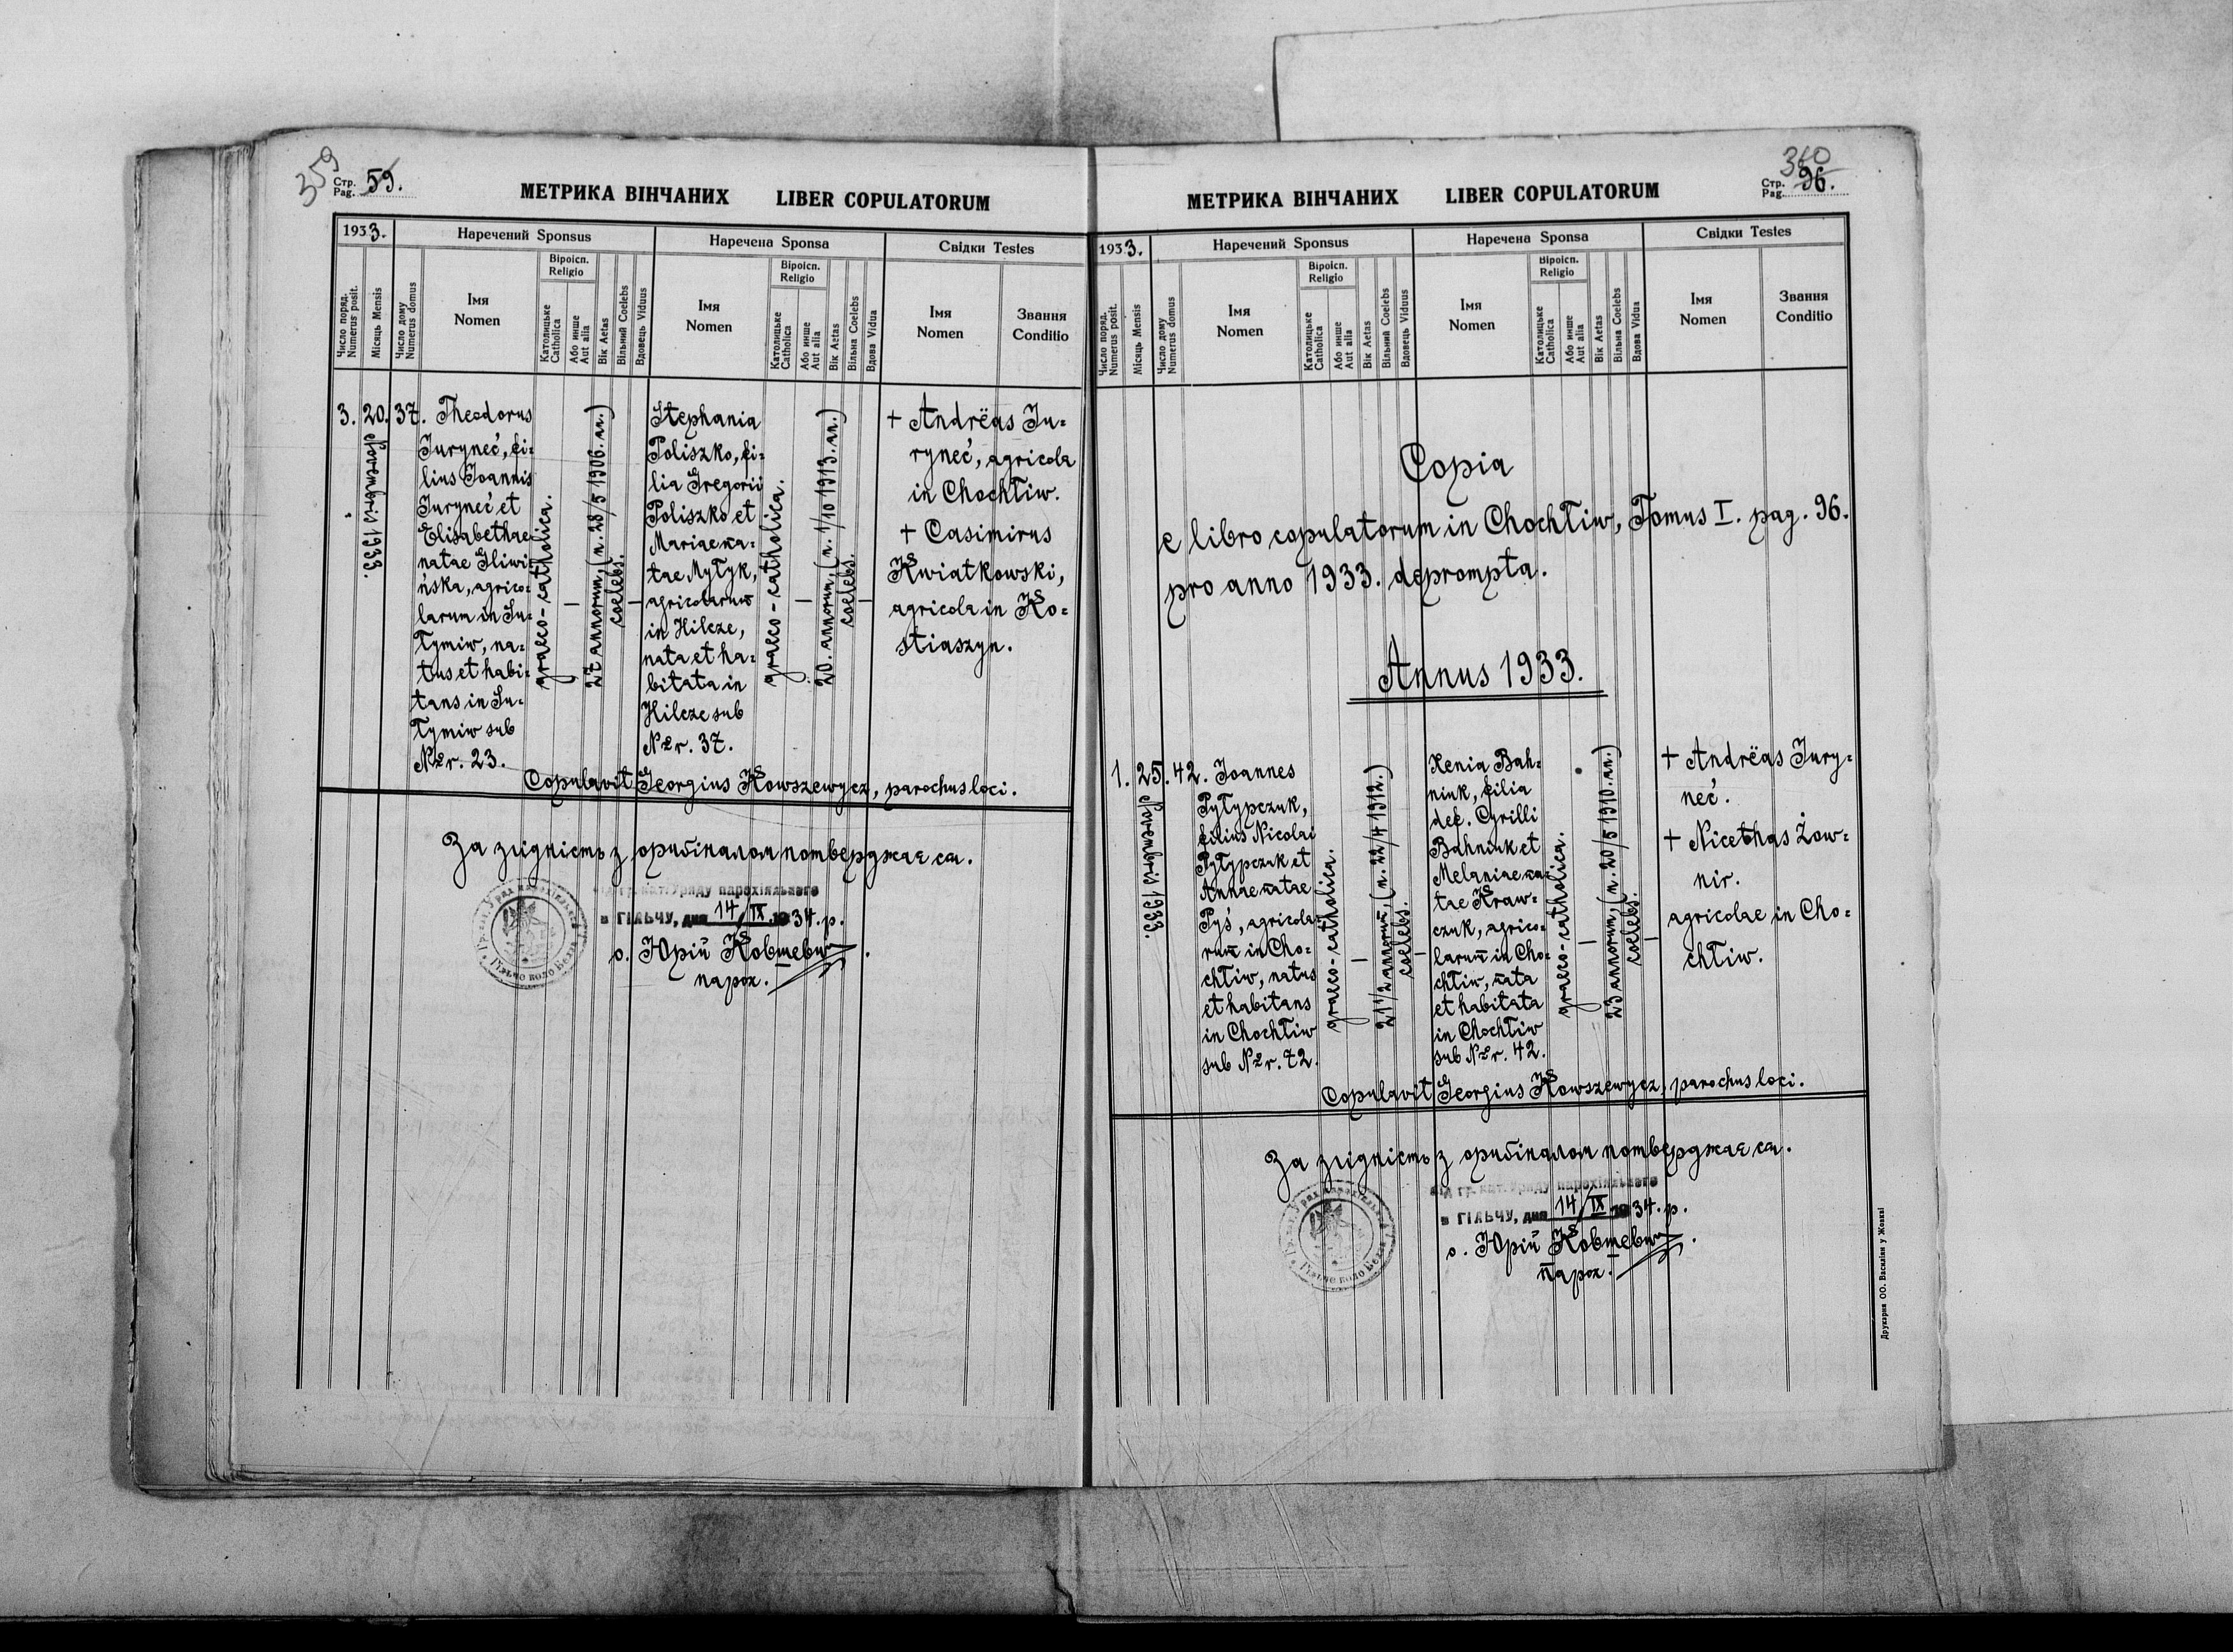 359
Стр.
Pag. 59.
МЕТРИКА ВІНЧАНИХ LIBER COPULATORUM
1933.
Наречений Sponsus
Наречена Sponsa
Свідки Testes
Число поряд.
Numerus posit.
Місяць Mensis
Число дому
Numerus domus
Імя
Nomen
Віроісп.
Religio
Католицьке
Catholica
Або инше
Aut alia
Вік Aetas
Вільний Coelebs
Вдовець Viduus
Імя
Nomen
Віроісп.
Religio
Католицьке
Catholica
Або инше
Aut alia
Вік Aetas
Вільна Coelebs
Вдова Vidua
Імя
Nomen
Звання
Conditio
3. 20. 37.
Novembris 1933.
Theodorus
Juryneć, fi=
lius Joannis
Juryneć et
Elisabethae
natae Iliwi=
ńska, agrico=
larum in Su=
tymiw, na=
tus et habi=
tans in Su=
tymiw sub
Nr. 23.
graeco-catholica.
—
27 annorum, (n. 28/5 1906. nn.)
coelebs.
—
Stephania
Poliszko, fi=
lia Gregorii
Poliszko et
Mariae na=
tae Mytyk,
agricolarum
in Hilcze,
nata et ha=
bitata in
Hilcze sub
Nr. 37.
graeco-catholica.
—
20. annorum, (n. 1/10 1913. nn.)
coelebs.
—
+ Andrëas Ju=
ryneć, agricola
in Chochtiw.
+ Casimirus
Kwiatkowski,
agricola in Ko=
stiaszyn.
Copulavit Georgius Kowszewycz, parochus loci.
За згідність з оригіналом потверджає ся.
від гр. кат. Уряду парохіяльного
в ГІЛЬЧУ, дня 14/IX 1934. р.
о. Юрій Ковшевич.
парох.
360
Стр.
Pag. 96.
МЕТРИКА ВІНЧАНИХ LIBER COPULATORUM
1933.
Наречений Sponsus
Наречена Sponsa
Свідки Testes
Число поряд.
Numerus posit.
Місяць Mensis
Число дому
Numerus domus
Імя
Nomen
Віроісп.
Religio
Католицьке
Catholica
Або инше
Aut alia
Вік Aetas
Вільний Coelebs
Вдовець Viduus
Імя
Nomen
Віроісп.
Religio
Католицьке
Catholica
Або инше
Aut alia
Вік Aetas
Вільна Coelebs
Вдова Vidua
Імя
Nomen
Звання
Conditio
Copia
e libro copulatorum in Chochtiw, Tomus I. pag. 96.
pro anno 1933. deprompta.
Annus 1933.
1. 25. 42.
Novembris 1933.
Joannes
Pytypczuk,
filius Nicolai
Pytypczuk et
Annae natae
Pyś, agricola=
rum in Cho=
chtiw, natus
et habitans
in Chochtiw
sub Nr. 72.
graeco-catholica.
—
21 1/2 annorum, (n. 22/4 1912.)
coelebs.
—
Xenia Bah=
niuk, filia
def. Cyrilli
Bahniuk et
Melaniae na=
tae Kraw=
czuk, agrico=
larum in Cho=
chtiw, nata
et habitata
in Chochtiw
sub Nr. 42.
graeco-catholica.
—
23 annorum, (n. 20/5 1910. nn.)
coelebs.
—
+ Andrëas Jury=
neć.
+ Nicethas Żow=
nir.
agricolae in Cho=
chtiw.
Copulavit Georgius Kowszewycz, parochus loci.
За згідність з оригіналом потверджає ся.
від гр. кат. Уряду парохіяльного
в ГІЛЬЧУ, дня 14/IX 1934. р.
о. Юрій Ковшевич.
парох.
Друкарня ОО. Василіян у Жовкві